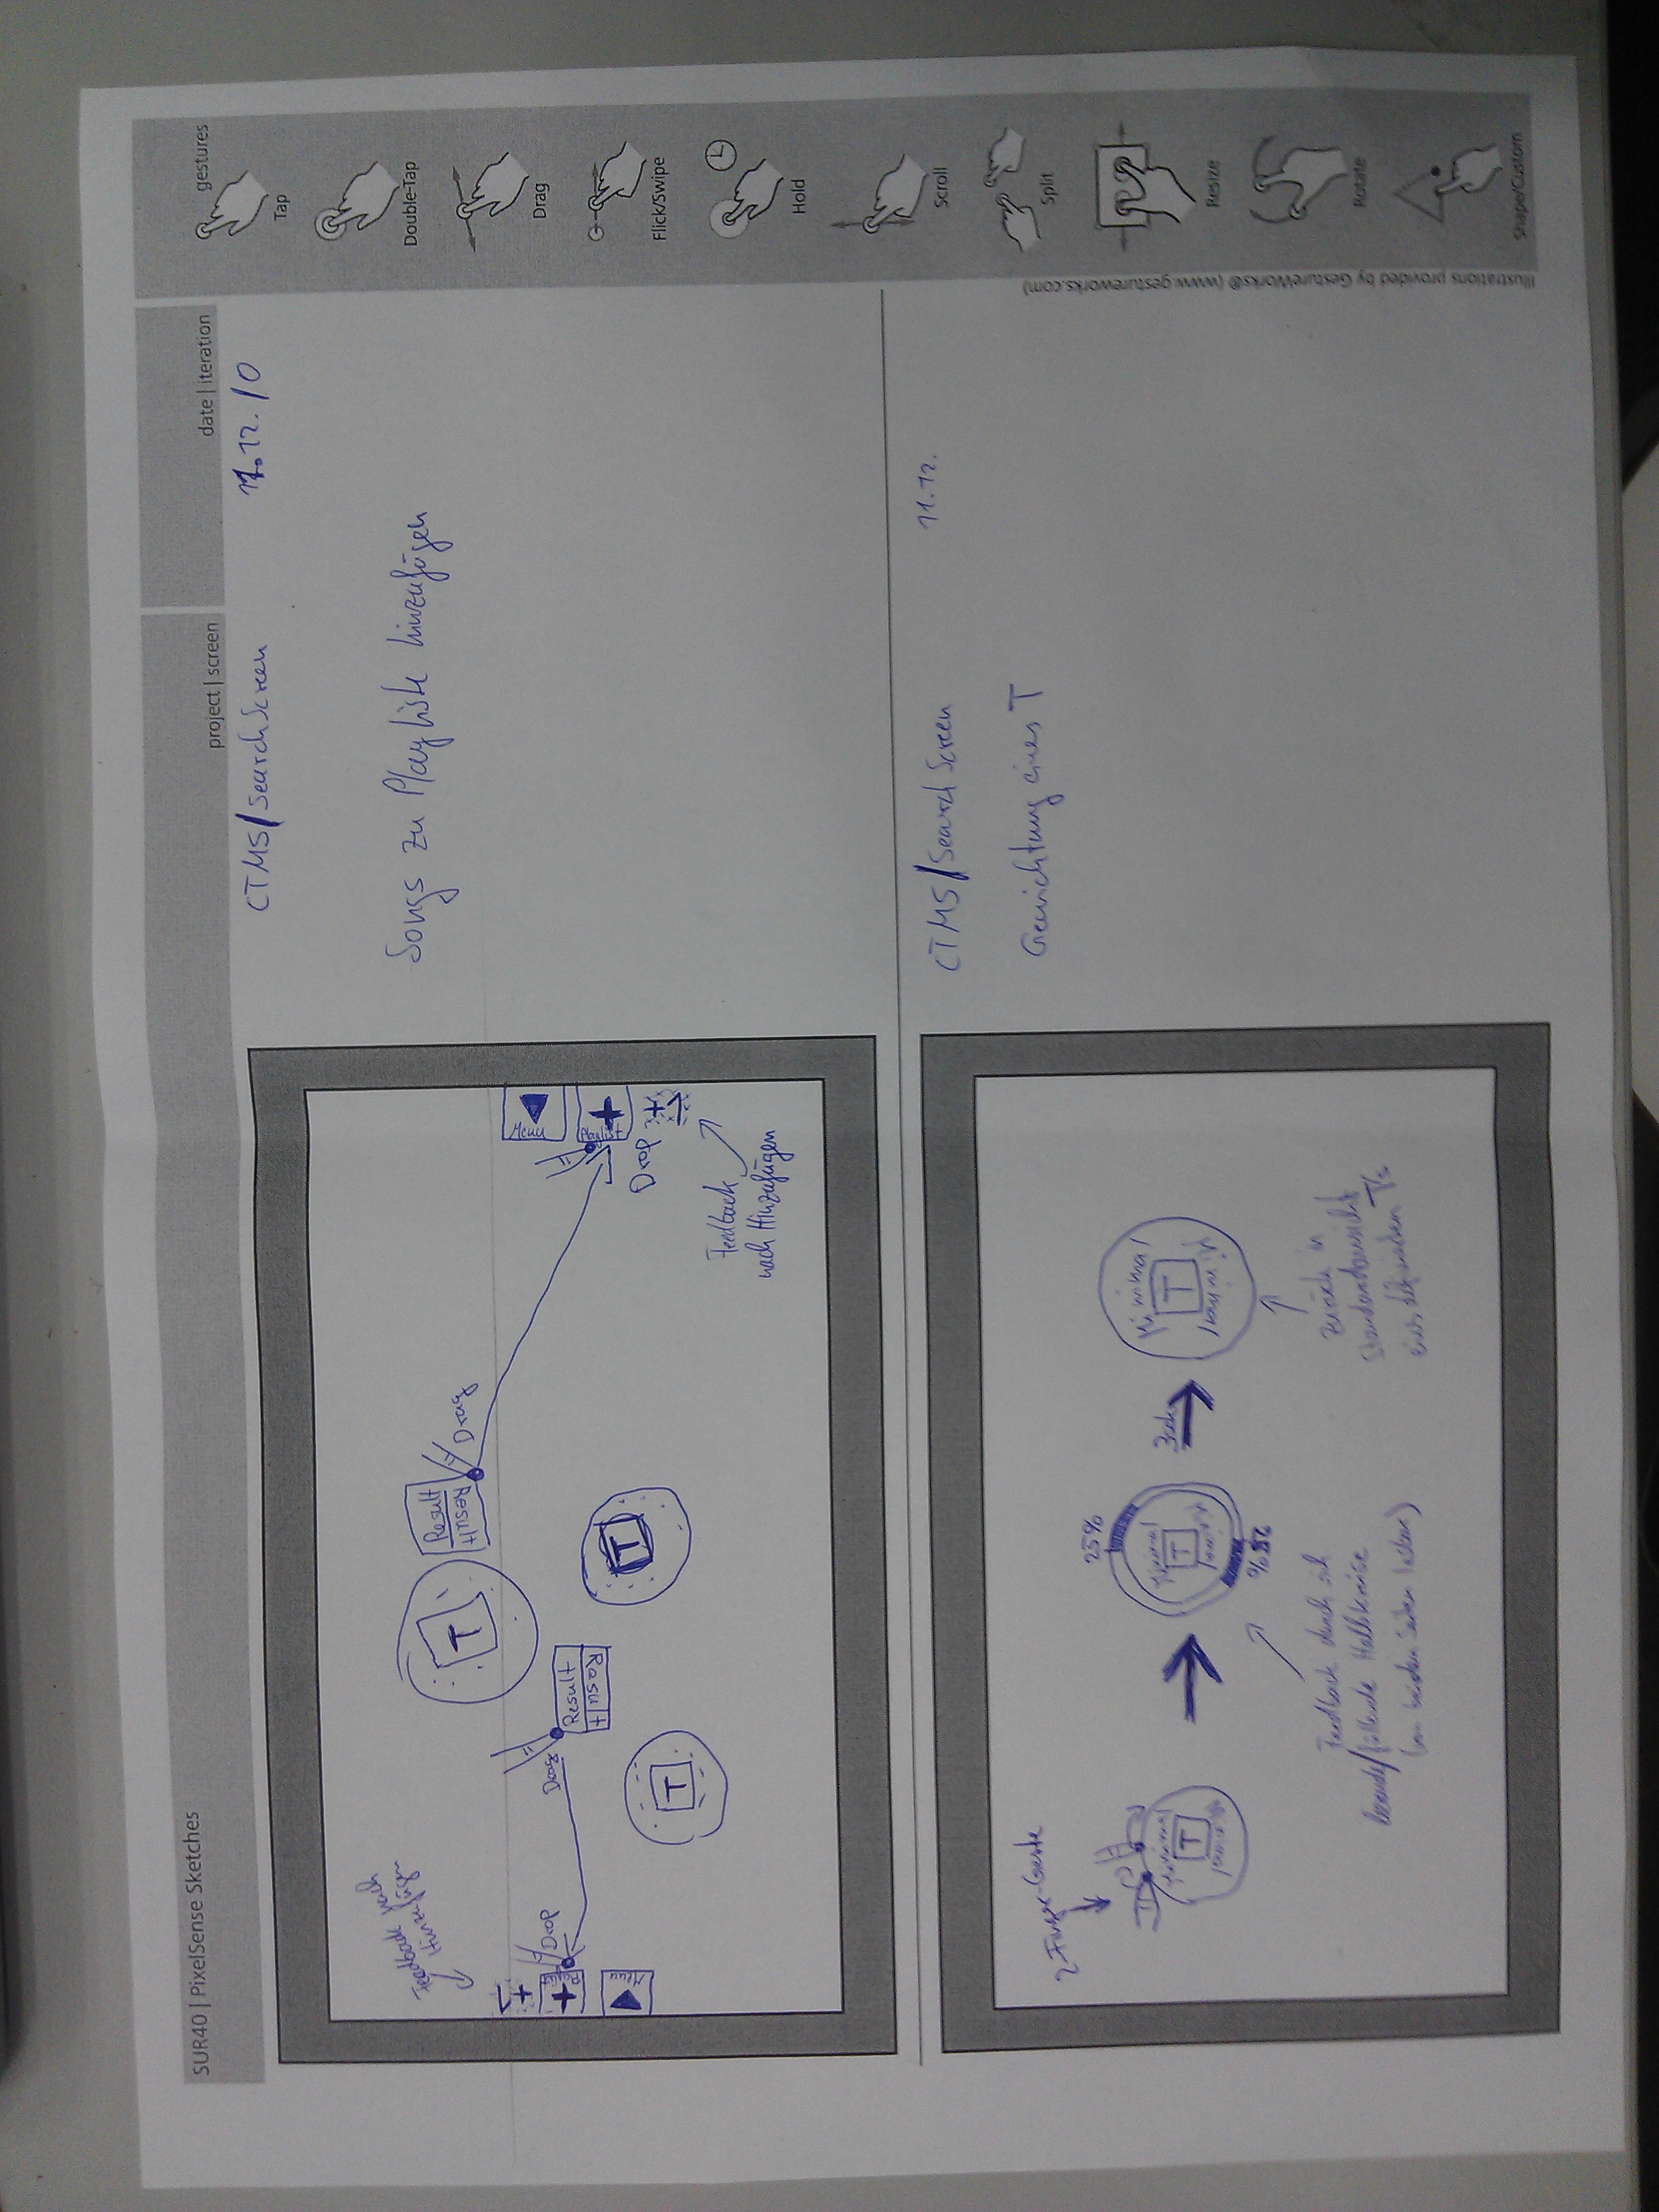 SUR40 | PixelSense Sketches
project | screen
date | iteration
gestures
CTMS/SearchScreen
11.12. /0
Songs zu Playliste hinzufügen
Feedback nach
Hinzufügen
Drop
Menu
Drag
Result
Result
T
T
Result
Result
Drag
T
Menu
Playlist
Drop
Feedback
nach Hinzufügen
CTMS/Search Screen
11.12.
Gewichtung eines T
2-Finger-Geste
Minimal
T
25%
Minimal
T
25%
3sek
Minimal
T
Feedback durch sich
füllende Halbkreise
(von beiden Seiten lesbar)
zurück in
Standardansicht
eines T's
Tap
Double-Tap
Drag
Flick/Swipe
Hold
Scroll
Split
Resize
Rotate
Shape/Custom
Illustrations provided by GestureWorks® (www.gestureworks.com)